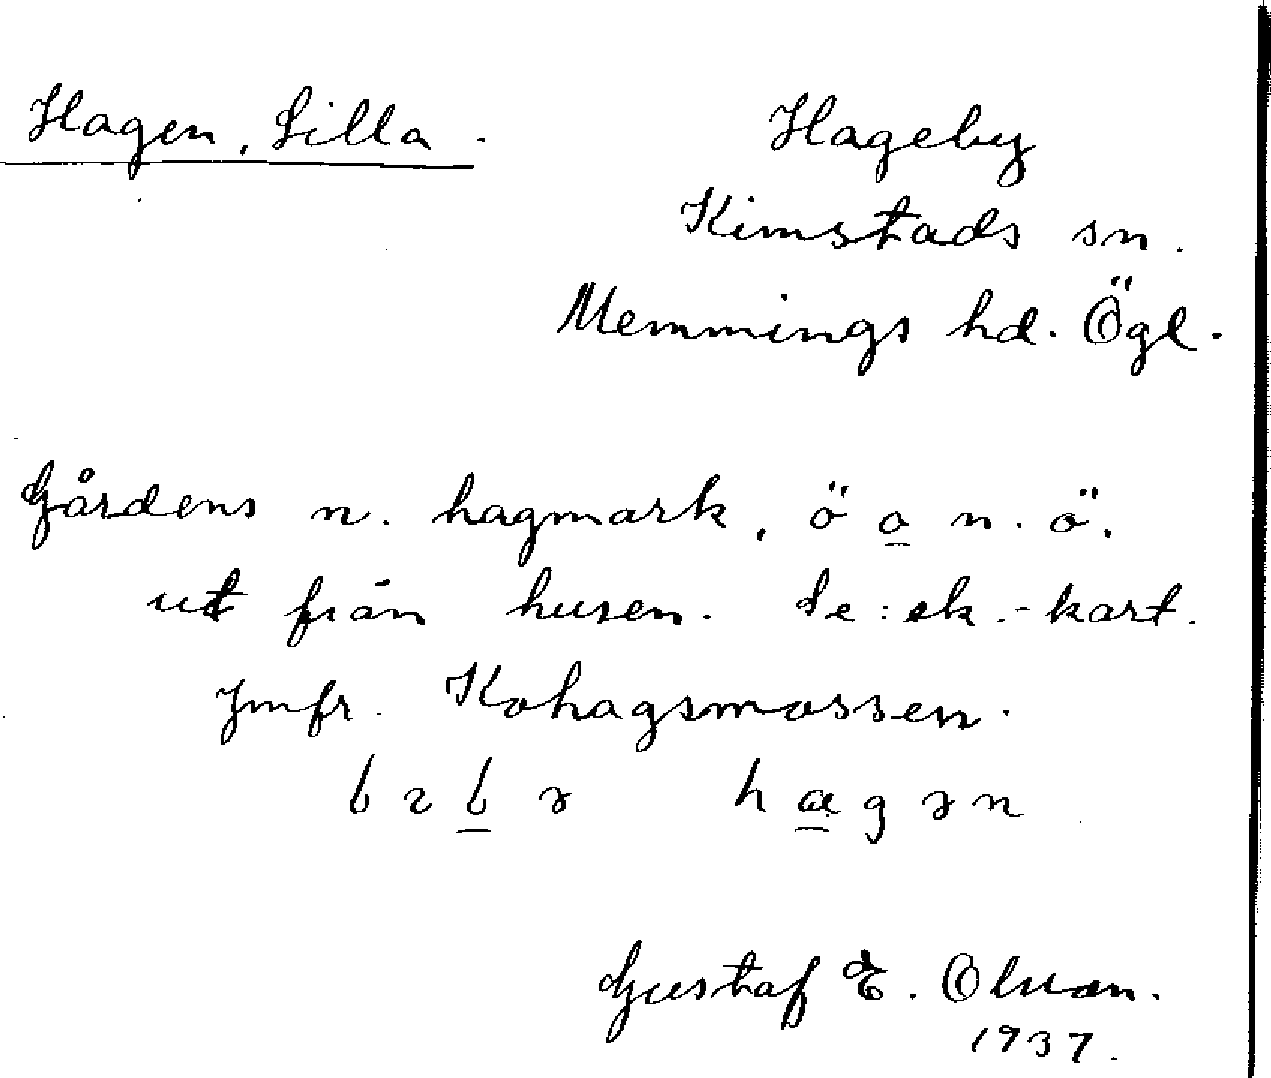 Hagen, Lilla.
Hageby
Kimstads sn.
Memmings hd. Ögl.
Gårdens n. hagmark, ö o n. ö.
ut från husen. Se: ek.-kart.
Jmfr. Kohagsmossen.
Gustaf E. Olsson.
1937.